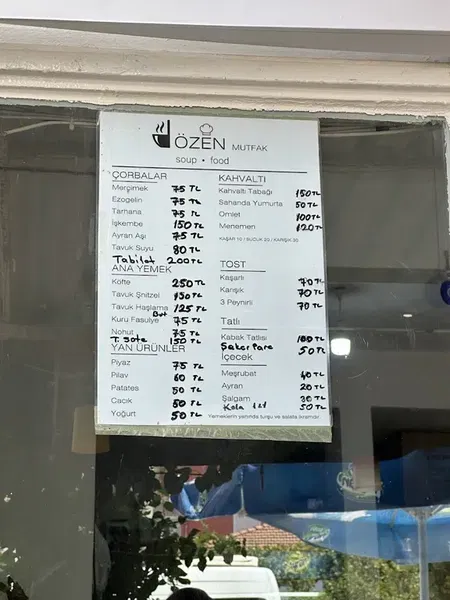 ÖZEN MUTFAK
soup • food
ÇORBALAR
Merçimek 75 TL
Ezogelin 75 TL
Tarhana 75 TL
İşkembe 150 TL
Ayran Aşı 75 TL
Tavuk Suyu 80 TL
200 TL
ANA YEMEK
Köfte 250 TL
Tavuk Şnitzel 150 TL
Tavuk Haşlama 125 TL
But
Kuru Fasulye 75 TL
Nohut 75 TL
T. Sote 150 TL
YAN ÜRÜNLER
Piyaz 75 TL
Pilav 60 TL
Patates 50 TL
Cacık 50 TL
Yoğurt 50 TL
KAHVALTI
Kahvaltı Tabağı 150 TL
Sahanda Yumurta 50 TL
Omlet 100 TL
Menemen 120 TL
KAŞAR 10 / SUCUK 20 / KARIŞIK 30
TOST
Kaşarlı 70 TL
Karışık 70 TL
3 Peynirli 70 TL
Tatlı
Kabak Tatlısı 100 TL
Şekerpare 50 TL
İçecek
Meşrubat 40 TL
Ayran 20 TL
Şalgam 30 TL
Kola 50 TL
Yemeklerin yanında turşu ve salata ikramdır.